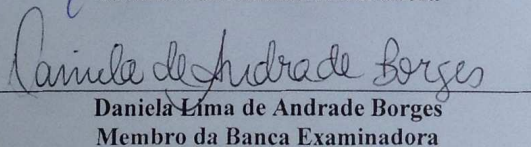 Daniela de Andrade Borges
Daniela Lima de Andrade Borges
Membro da Banca Examinadora